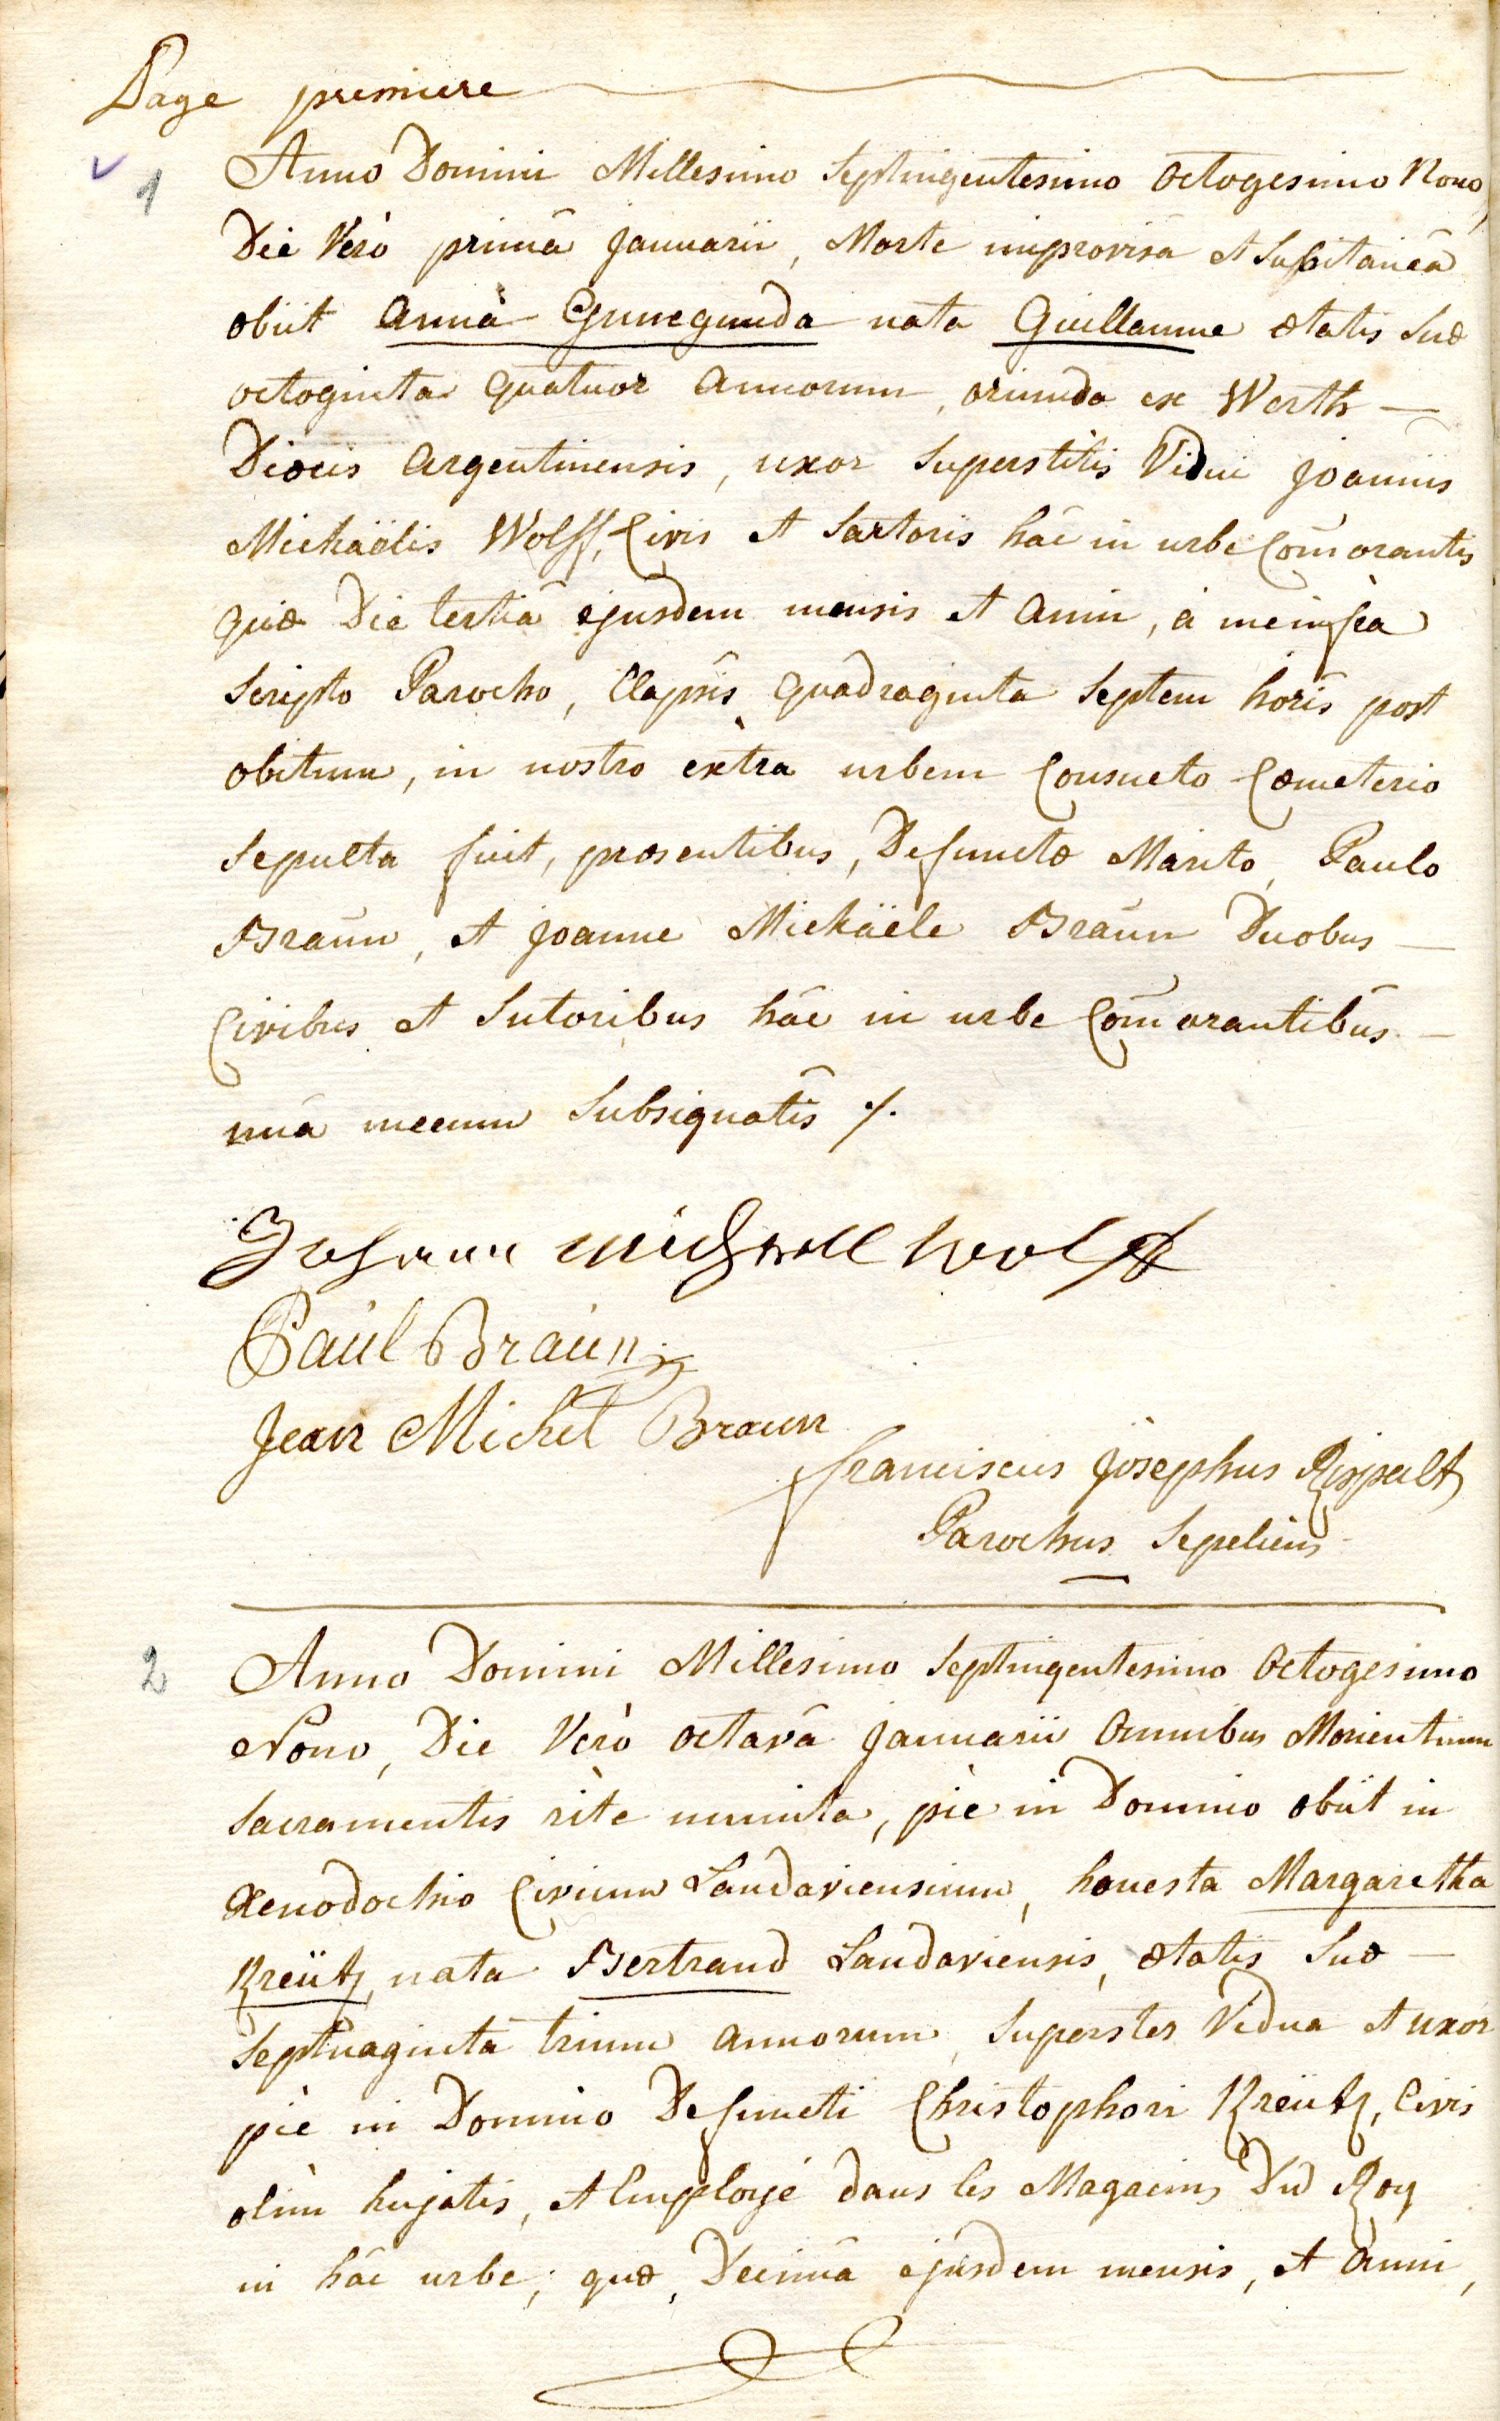 Page premiere
1 Anno Domini Millesimo Septingentesimo octogesimo Nono,
Die Verò primâ Januarii, Morte improvisâ et Subitaneâ
obiit Anna Cunegunda nata Guillaume ætatis Suæ
octoginta quatuor annorum, oriunda ex Werth —
Diœcis argentinensis, uxor Superstitis Vidui Joannis
Michaëlis Wolff, Civis et Sartoris hâc in urbe Com̄orantis
quæ Die tertiâ ejusdem mensis et anni, à me infra
Scripto Parocho, Elapsis quadraginta Septem horis post
obitum, in nostro extra urbem Consueto Cœmeterio
Sepulta fuit, præsentibus, Defunctæ Marito, Paulo
Braun, et Joanne Michaële Braun Duobus —
Civibus et Sutoribus hâc in urbe Com̄orantibus —
unâ mecum Subsignatis ./.
Johann michaell wolff
Paul Braun
Jean Michel Braun
franciscus Josephus Rispalt
Parochus Sepeliens
2 Anno Domini Millesimo Septingentesimo Octogesimo
Nono, Die Verò octavâ Januarii Omnibus Morientium
Sacramentis ritè munita, piè in Domino obiit in
Xenodochio Civium Landaviensium, honesta Margaretha
Kreütz, nata Bertrand Landaviensis, ætatis Suæ —
Septuaginta trium annorum, Superstes Vidua et uxor
piè in Domino Defuncti Christophori Kreütz, Civis
olim hujatis, et Employé dans les Magacins Du Roy
in hâc urbe; quæ, Decimâ ejusdem mensis, et anni,